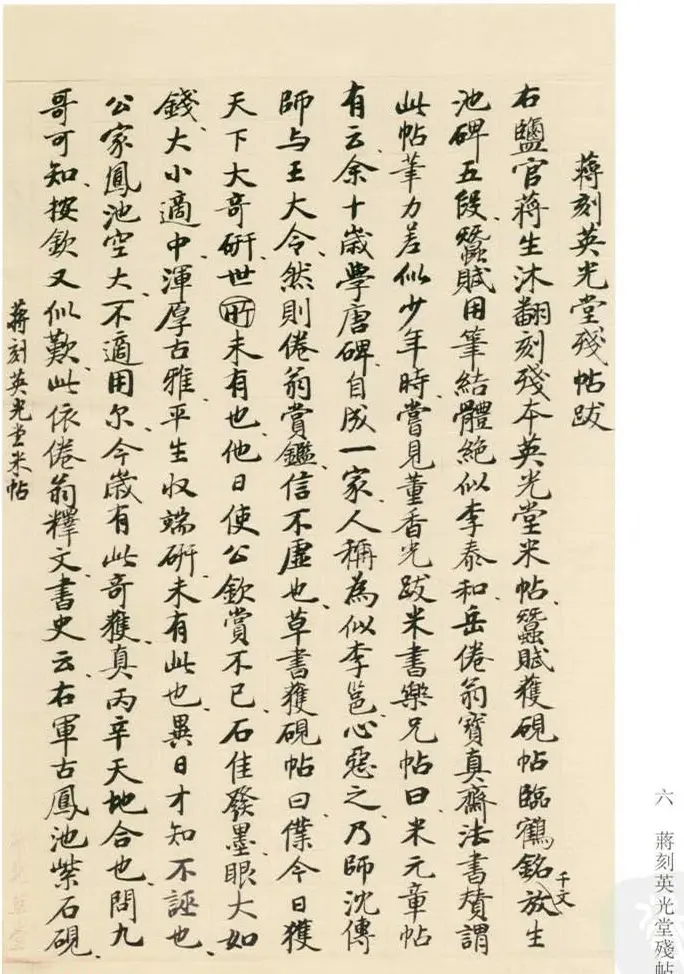 蔣刻英光堂殘帖跋
右鹽官蔣生沐翻刻殘本英光堂米帖、蠶賦獲硯帖臨鶴銘放生
千文
池碑五段、蠶賦用筆結體絕似李泰和、岳倦翁寶真齋法書贊謂
此帖筆力差似少年時、嘗見董香光跋米書樂兄帖曰、米元章帖
有云、余十歲學唐碑、自成一家、人稱為似李邕、心惡之、乃師沈傳
師与王大令、然則倦翁賞鑑、信不虛也、草書獲硯帖曰、僕今日獲
天下大奇硏、世所未有也、他日使公欽賞不已、石佳發墨、眼大如
錢、大小適中、渾厚古雅、平生収端硏、未有此也、異日才知不誣也、
公家鳳池空大、不適用尔、今歲有此奇獲、真丙辛天地合也、問九
哥可知、按欽又似歎、此依倦翁釋文、書史云、右軍古鳳池紫石硯、
蔣刻英光堂米帖
六 蔣刻英光堂殘帖